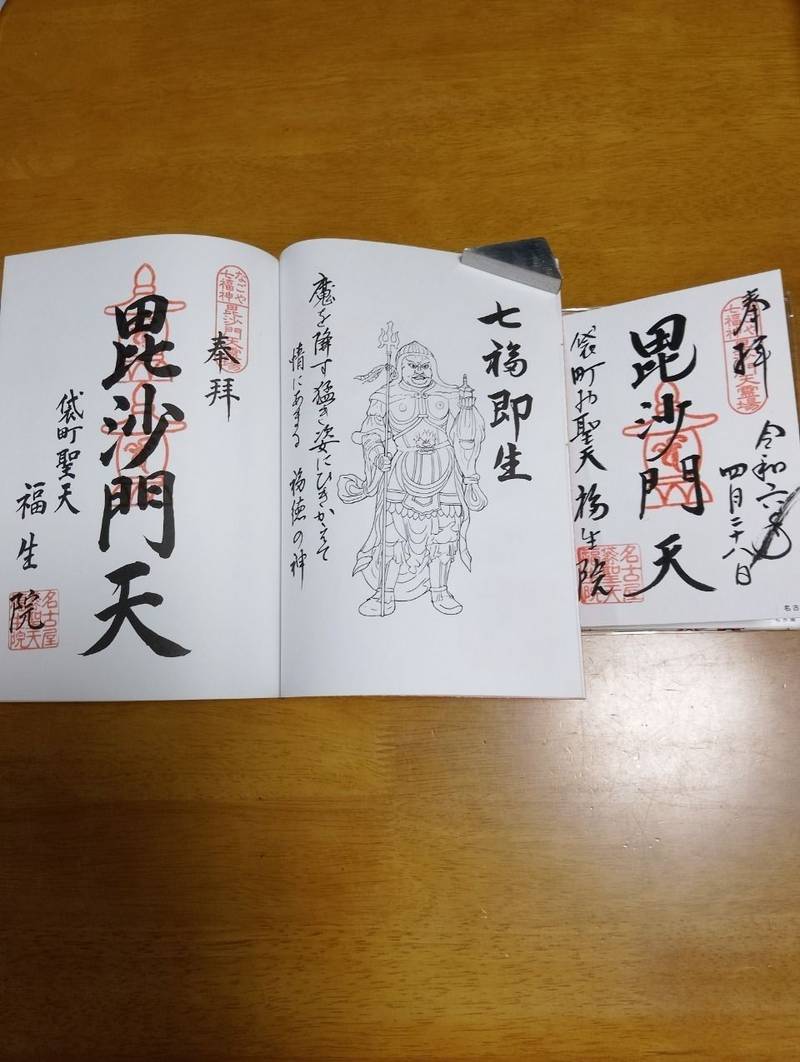 七福即生
魔を降す猛き姿にひきかえて
情にあまる 福徳の神
なごや
七福神
毘沙門天霊場
奉拝
毘沙門天
袋町聖天
福生院
名古屋
奉拝
七福神
天霊場
令和六年
四月二十八日
毘沙門天
袋町お聖天 福生院
名古屋
名古